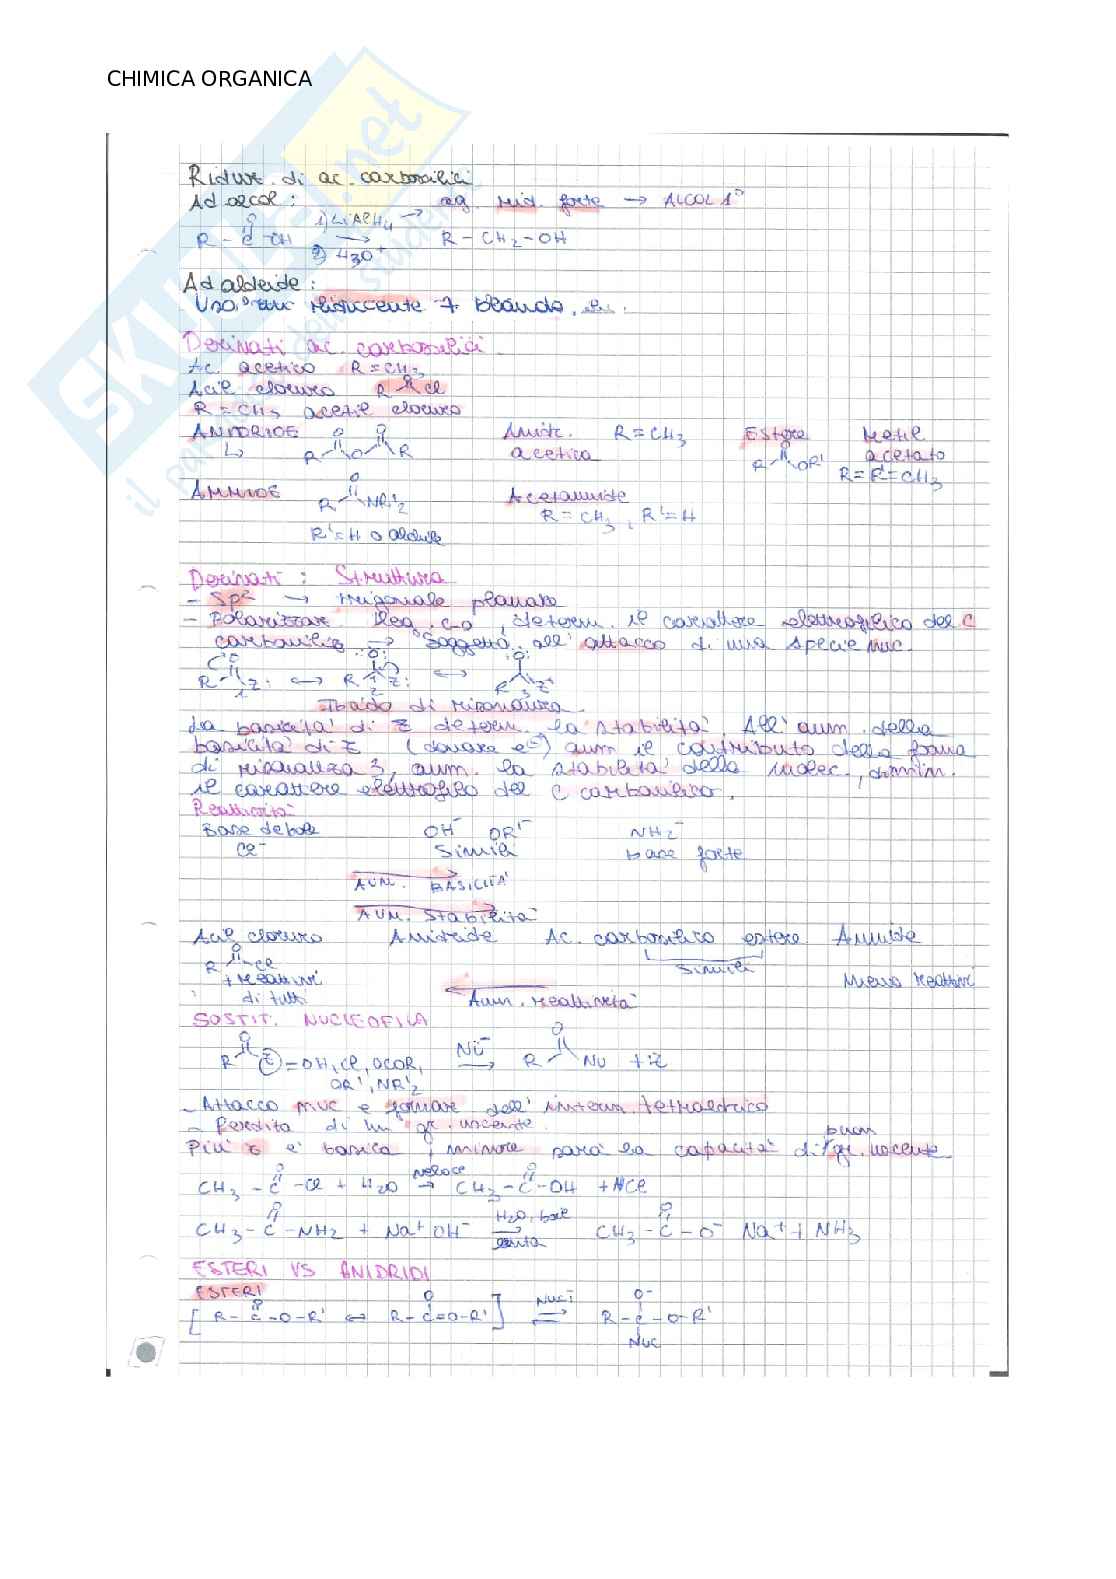 CHIMICA ORGANICA
SKUOLA.net
Riduz. di ac. carbossilici
Ad alcol: ag. rid. forte → ALCOL 1°
R-C-OH 1) LiAlH4 → R-CH2-OH
O 2) H3O+
Ad aldeide:
Uso un riducente + blando
Derivati ac. carbossilici
Ac. acetico R=CH3
Acil cloruro R Cl
R=CH3 acetil cloruro
ANIDRIDE R O R Anidr. acetica R=CH3 ESTERE R OR' Metil acetato R=R'=CH3
AMMIDE R NR'2 Acetammide
R=CH3, R'=H
R'=H o alchile
Derivati: Struttura
- Sp2 → trigonale planare
- Polarizzaz. leg. C-O, determ. il carattere elettrofilico del C
carbonilico → Soggetto all' attacco di una specie nuc.
R Z: ↔ R Z: ↔ R Z+
1 2 3
Ibrido di risonanza.
La basicità di Z determ. la stabilità. All' aum. della
basicità di Z (donare e-) aum il contributo della forma
di risonanza 3, aum. la stabilità della molec., dimin.
il carattere elettrofilo del C carbonilico.
Reattività
Base debole OH- OR'- NH2-
Cl- Simili base forte
AUM. BASICITÀ
AUM. Stabilità
Acil cloruro Anidride Ac. carbossilico estere Ammide
R Cl Simili
+ reattivi Meno reattivi
di tutti Aum. reattività
SOSTIT. NUCLEOFILA
R Z =OH, Cl, OCOR, Nu- → R Nu + Z
OR', NR'2
- Attacco nuc e formaz dell' interm. tetraedrico
- Perdita di un gr. uscente.
buon
Più Z è basica, minore sarà la capacità di gr. uscente
CH3-C-Cl + H2O veloce → CH3-C-OH + HCl
CH3-C-NH2 + Na+OH- H2O, lenta → CH3-C-O- Na+ + NH3
ESTERI VS ANIDRIDI
ESTERI
[R-C-O-R' ↔ R-C=O-R'] Nuc: ⇌ R-C-O-R'
Nuc